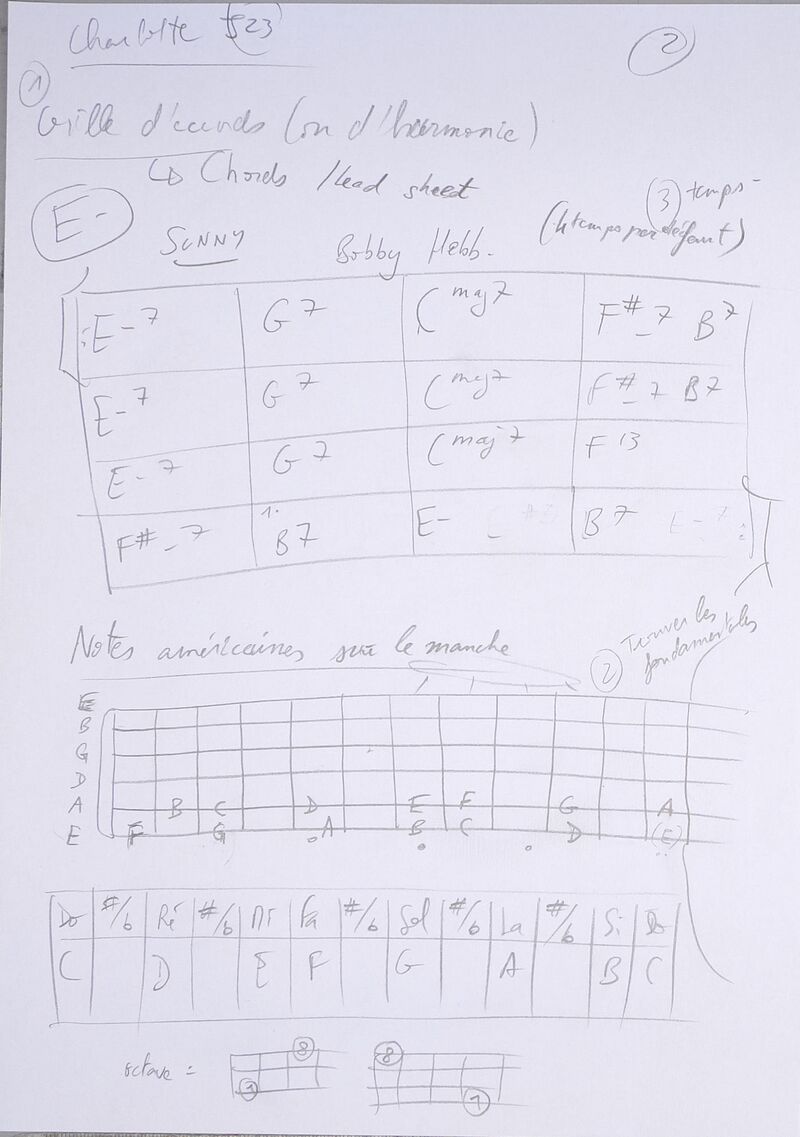 Charlotte 23
2
1
Grille d'accords (ou d'harmonie)
↳ Chords / lead sheet
E-
SUNNY
Bobby Hebb.
3 temps
(4 temps par défaut)
E-7 G7 Cmaj7 F#-7 B7
E-7 G7 Cmaj7 F#-7 B7
E-7 G7 Cmaj7 F13
F#-7 1. B7 E- B7 E-7
Notes américaines sur le manche
2 Trouver les fondamentales
E
B
G
D
A B C D E F G A
E F G A B C D (E)
Do #/b Ré #/b Mi Fa #/b Sol #/b La #/b Si Do
C D E F G A B C
octave = 1 8 8 1